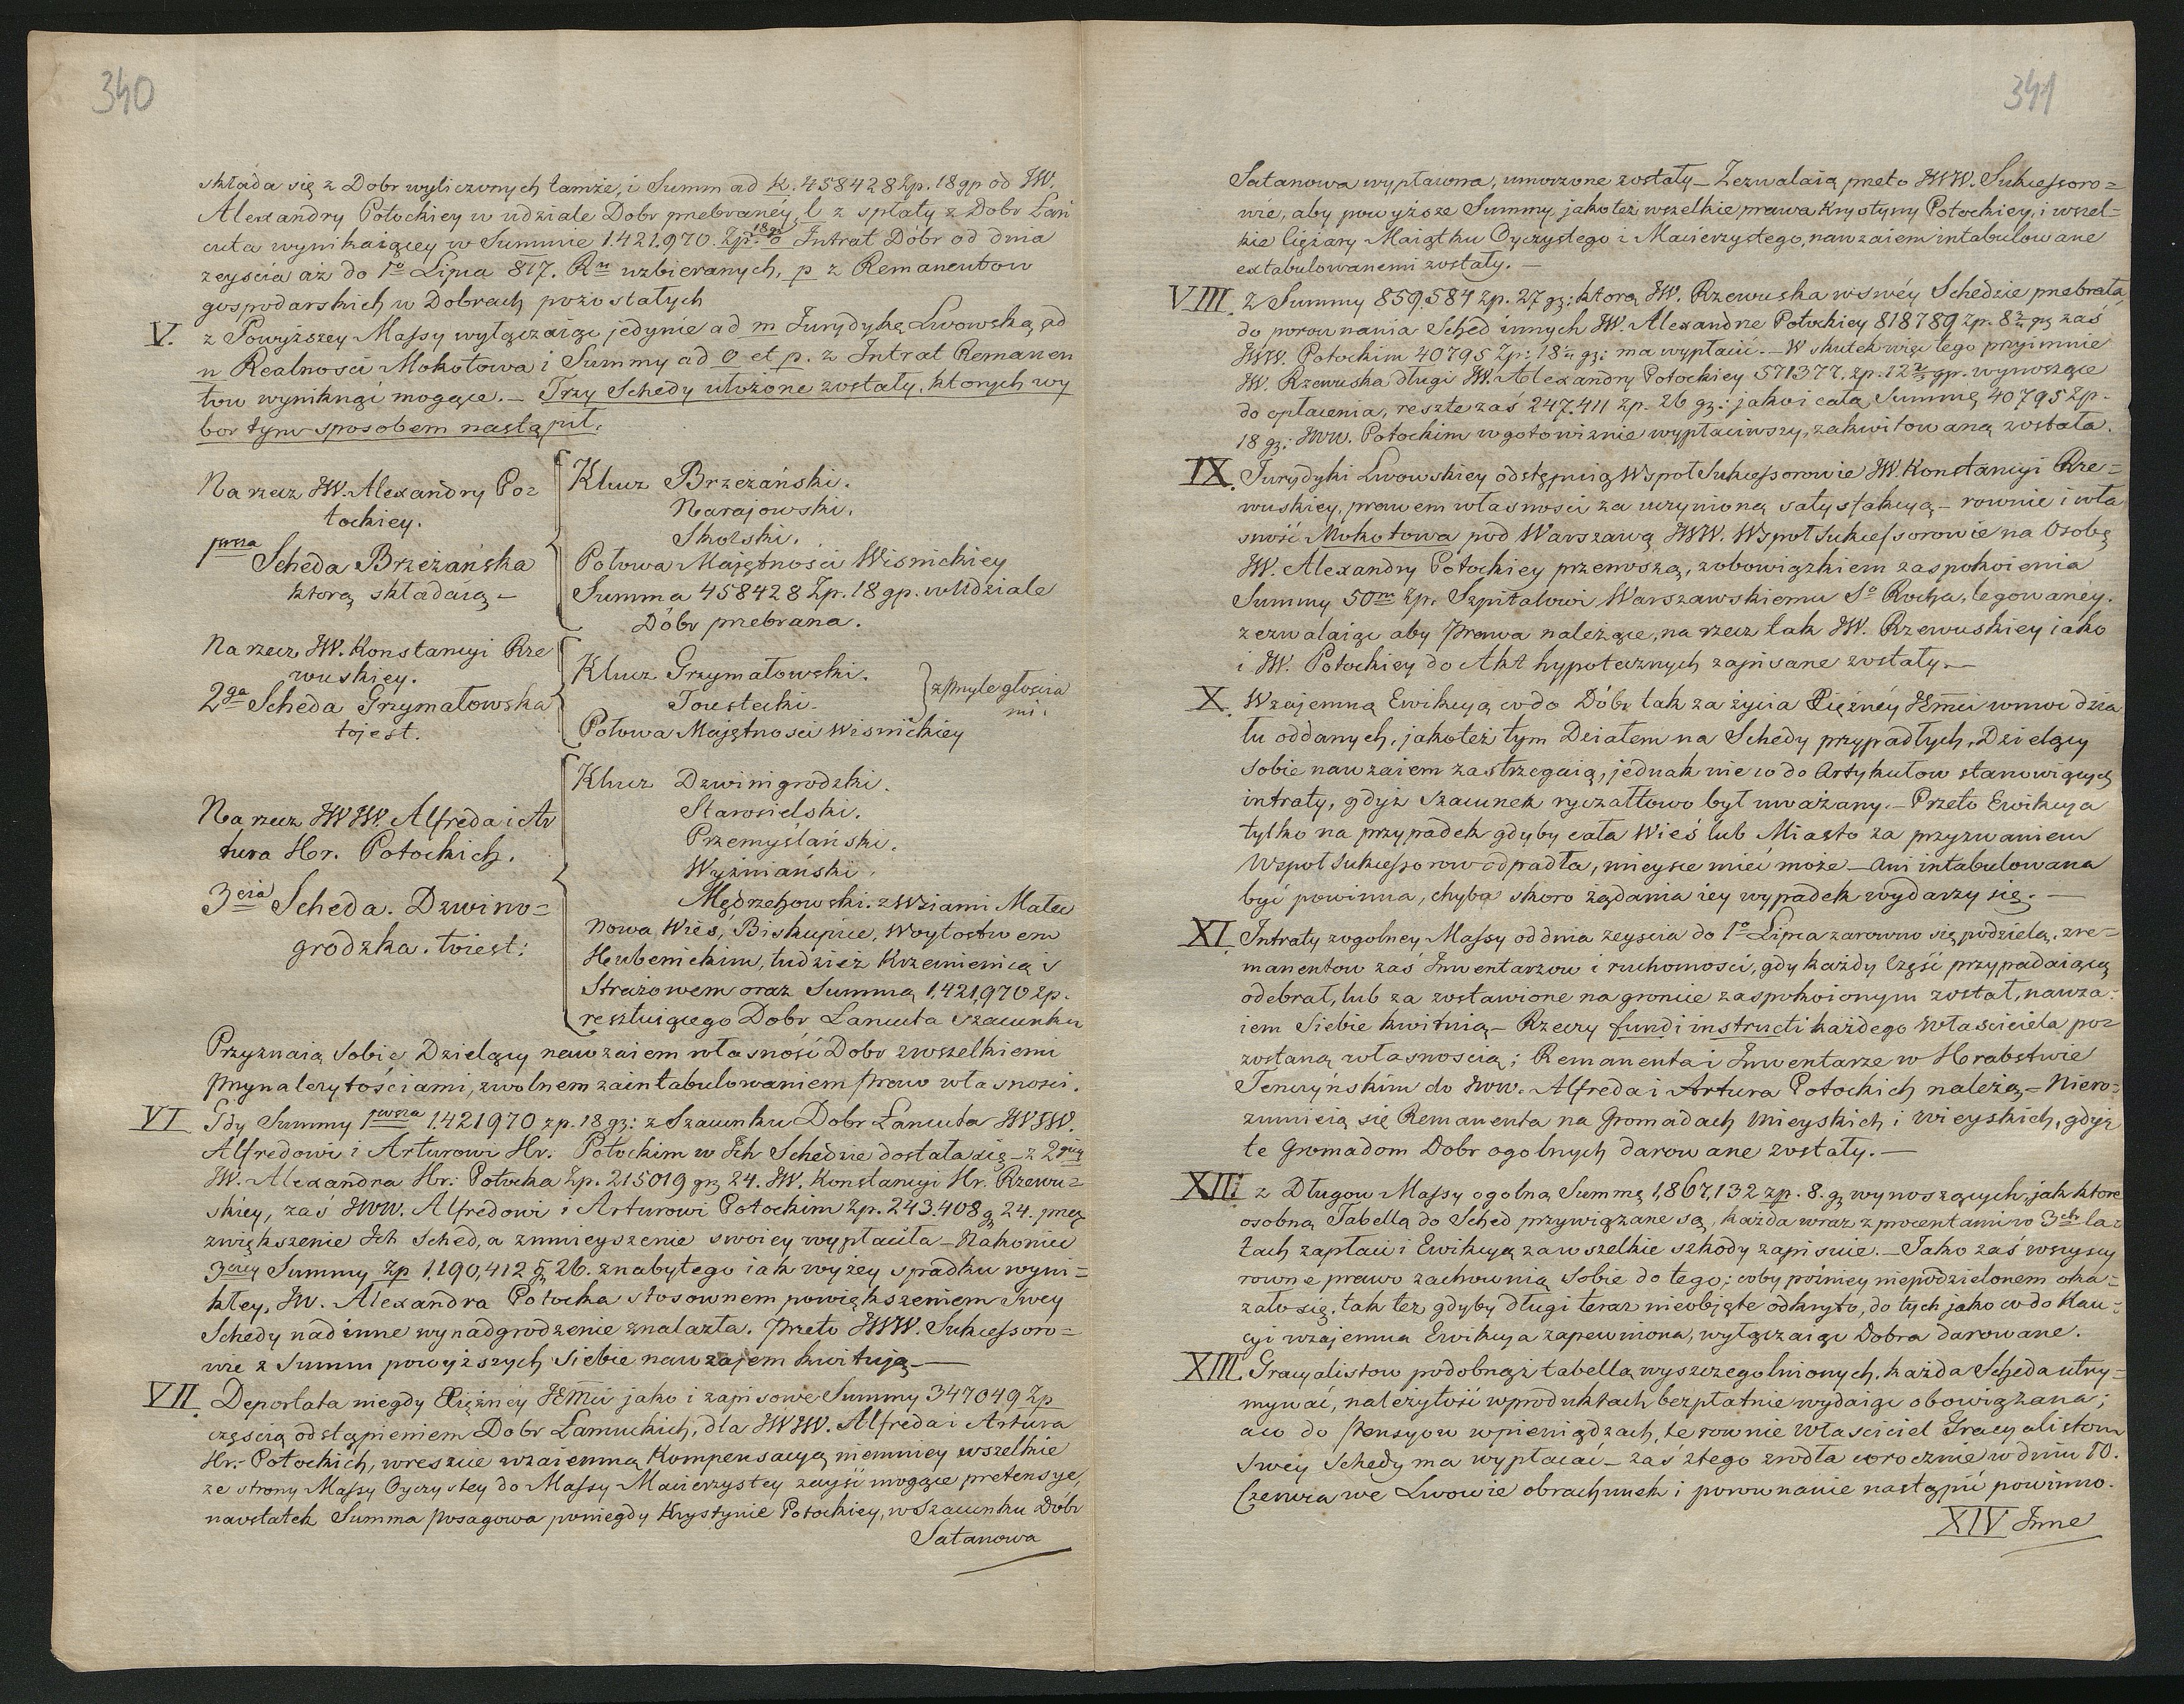 340
składa się z Dobr wyliczonych tamże, i Summ ad k. 458428 Zp. 18 gp od JW.
Alexandry Potockiey w udziale Dobr przebraney, l z spłaty z Dobr Łań
cuta wynikaiącey w Summie 1.421.970. Zp. 18 gr o Intrat Dóbr od dnia
zeyscia aż do 1go Lipca 817. Ru uzbieranych, p z Remanentow
gospodarskich w Dobrach pozostałych
V. z Powyższey Massy wyłączaiąc jedynie ad m Jurydykę Lwowską ad
n Realnosci Mokotowa i Summy ad o et p. z Intrat Remanen
tow wyniknąć mogące. – Trzy Schedy ułożone zostały, ktorych wy
bor tym sposobem nastąpił.
Na rzecz JW. Alexandry Po=
tockiey.
1wsza Scheda Brzeżańska
ktorą składaią –
Klucz Brzeżański.
Narajowski.
Skolski.
Połowa Majętnosci Wisnickiey
Summa 458428 Zp. 18 gp. w Udziale
Dóbr przebrana.
Na rzecz JW. Konstancyi Rze
wuskiey.
2ga Scheda Grzymałowska
tojest.
Klucz Grzymałowski.
Toustecki.
z przyległoscia
mi.
Połowa Majętnosci Wisnickiey
Na rzecz JWJW. Alfreda i Ar
tura Hr. Potockich.
3cia Scheda. Dzwino=
grodzka. toiest:
Klucz Dzwinigrodzki.
Starosielski.
Przemyślański.
Wyżniański.
Mędrzechowski. z Wsiami Małec
Nowa Wieś, Biskupice, Woytostwem
Hubenickim, tudzież Krzemienicą i
Strażowem oraz Summą 1,421,970 zp.
resztuiącego Dobr Łancuta szacunku
Przyznaią sobie Dzielący nawzaiem własność Dobr zwszelkiemi
przynależytościami, zwolnem zaintabulowaniem praw własnosci.
VI Gdy Summy 1wsza 1.421970 zp. 18 gz: z Szacunku Dobr Łancuta JWJW.
Alfredowi i Arturowi Hr. Potockim w Ich Schedzie dostała się – z 2giey
JW. Alexandra Hr: Potocka Zp. 215019 gz 24. JW. Konstancyi Hr. Rzewu=
skiey, zaś JWW. Alfredowi i Arturowi Potockim Zp. 243.408 g 24. przez
zwiększenie Ich Sched, a zmnieyszenie swoiey wypłaciła – Nakoniec
3ciey Summy Zp 1,190,412 g 26. z nabytego iak wyżey spadku wyni=
kłey, JW. Alexandra Potocka stosownem powiększeniem Swey
Schedy nad inne wynadgrodzenie znalazła. Przeto JWW. Sukcessoro=
wie z Summ powyższych siebie nawzajem kwitują –
VII. Deportata niegdy Xiężnéy JEmci jako i zapisowe Summy 347049 Zp
częscią odstąpieniem Dobr Łancuckich, dla JWJW. Alfreda i Artura
Hr. Potockich, wreszcie wzaiemną Kompensacyą niemniey wszelkie
ze strony Massy Oyczystey do Massy Macierzystey zayść mogące pretensye
naostatek Summa posagowa poniegdy Krystynie Potockiey, w Szacunku Dóbr
Satanowa
341
Satanowa wypłacona, umorzone zostały – Zezwalaią przeto JWW. Sukcessoro=
wie, aby powyższe Summy, jakoteż wszelkie prawa Krystyny Potockiey, i wszel=
kie ciężary Maiątku Oyczystego i Macierzystego, nawzaiem intabulowane
extabulowanemi zostały. –
VIII. z Summy 859.584 zp. 27 gz: ktorą JW. Rzewuska w swéy Schedzie przebrała
do porownania Sched innych JW. Alexandrze Potockiey 818789 Zp. 8 gz zaś
JWW. Potockim 40795 Zp: 18 gz: ma wypłacić. – W skutek więc tego przyimuie
JW. Rzewuska długi JW. Alexandry Potockiey 571377. zp. 12 gp. wynoszące
do opłacenia, resztę zaś 247.411 Zp. 26 gz: jako i całą Summę 40795 Zp.
18 gz: JWW. Potockim w gotowiznie wypłaciwszy, zakwitowaną została.
IX. Jurydyki Lwowskiey odstępuią Wspoł Sukcessorowie JW. Konstancyi Rze=
wuskiey, prawem własnosci za uczynioną satysfakcyą – rownie i wła
sność Mokotowa pod Warszawą JWW. Wspoł Sukcessorowie na Osobę
JW. Alexandry Potockiey przenoszą, z obowiązkiem zaspokoienia
Summy 50m zp. Szpitalowi Warszawskiemu So Rocha, legowanéy.
zezwalaiąc aby Prawa należące, na rzecz tak JW. Rzewuskiey iako
i JW. Potockiey do Akt hypotecznych zapisane zostały. –
X. Wzajemną Ewikcyą co do Dóbr tak za życia Xiężnéy JEmci w moc dzia
łu oddanych, jakoteż tym Działem na Schedy przypadłych, Dzielący
sobie nawzaiem zastrzegaią, jednak nie co do Artykułow stanowiących
intraty, gdyż szacunek ryczałtowo był uważany. – Przeto Ewikcya
tylko na przypadek gdyby cała Wieś lub Miasto za przyzwaniem
Wspoł Sukcessorow odpadła, mieysce mieć może – ani intabulowana
być powinna, chyba skoro żądania iey wypadek wydarzy się. –
XI. Intraty zogolney Massy od dnia zeyscia do 1go Lipca zarowno się podzielą, z re=
manentow zaś Inwentarzow i ruchomosci, gdy każdy Część przypadaiącą
odebrał, lub za zostawione na groncie zaspokoionym został, nawza=
iem Siebie kwituią – Rzeczy fundi instructi każdego Własciciela po=
zostaną własnoscią; Remanenta i Inwentarze w Hrabstwie
Tenczyńskim do JWW. Alfreda i Artura Potockich należą – Niero=
zumieią się Remanenta na Gromadach mieyskich i wieyskich, gdyż
te Gromadom Dobr ogolnych darowane zostały. –
XII. z Długow Massy ogolną Summę 1,867,132 zp. 8. gz wynoszących, jak ktore
osobną Tabellą do Sched przywiązane są, każda wraz z procentami w 3ch la=
tach zapłaci i Ewikcyą za wszelkie szkody zapisuie. – Jako zaś wszyscy
rowne prawo zachownią Sobie do tego; coby póżniey niepodzielonem oka=
zało się, tak też gdyby długi teraz nieobjęte odkryto, do tych jako co do Kau=
cyi wzajemna Ewikcya zapewniona, wyłączaiąc Dobra darowane.
XIII. Gracyalistow podobnąż tabellą wyszczegolnionych, każda Scheda utrzy=
mywać, należytość w produktach bezpłatnie wydaiąc obowiązana;
a co do Pensyow w pieniądzach, te rownie Właściciel Gracyalistom
Swey Schedy ma wypłacać – zaś z tego zrodła corocznie w dniu 10.
Czerwca we Lwowie obrachunek i porownanie nastąpić powinno.
XIV Inne